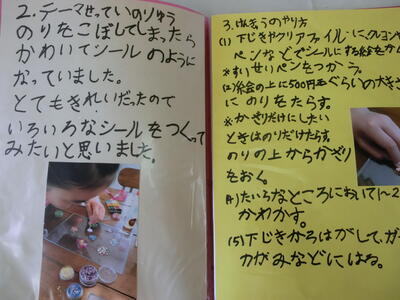 2. テーマせっていのりゅう
のりをこぼしてしまったら
かわいてシールのように
なっていました。
とてもきれいだったので
いろいろなシールをつくって
みたいと思いました。
3. けんきゅうのやり方
(1) 下じきやクリアファイルに、クレヨンや
ペンなどでシールにする絵をか
*すいせいペンをつかう。
(2) 絵の上に500円玉ぐらいの大きさ
にのりをたらす。
*かざりだけにしたい
ときはのりだけたらす。
のりの上からかざり
をおく。
たいらなところにおいて1~2
かわかす。
(5) 下じきからはがして、ガ
かがみなどにはる。